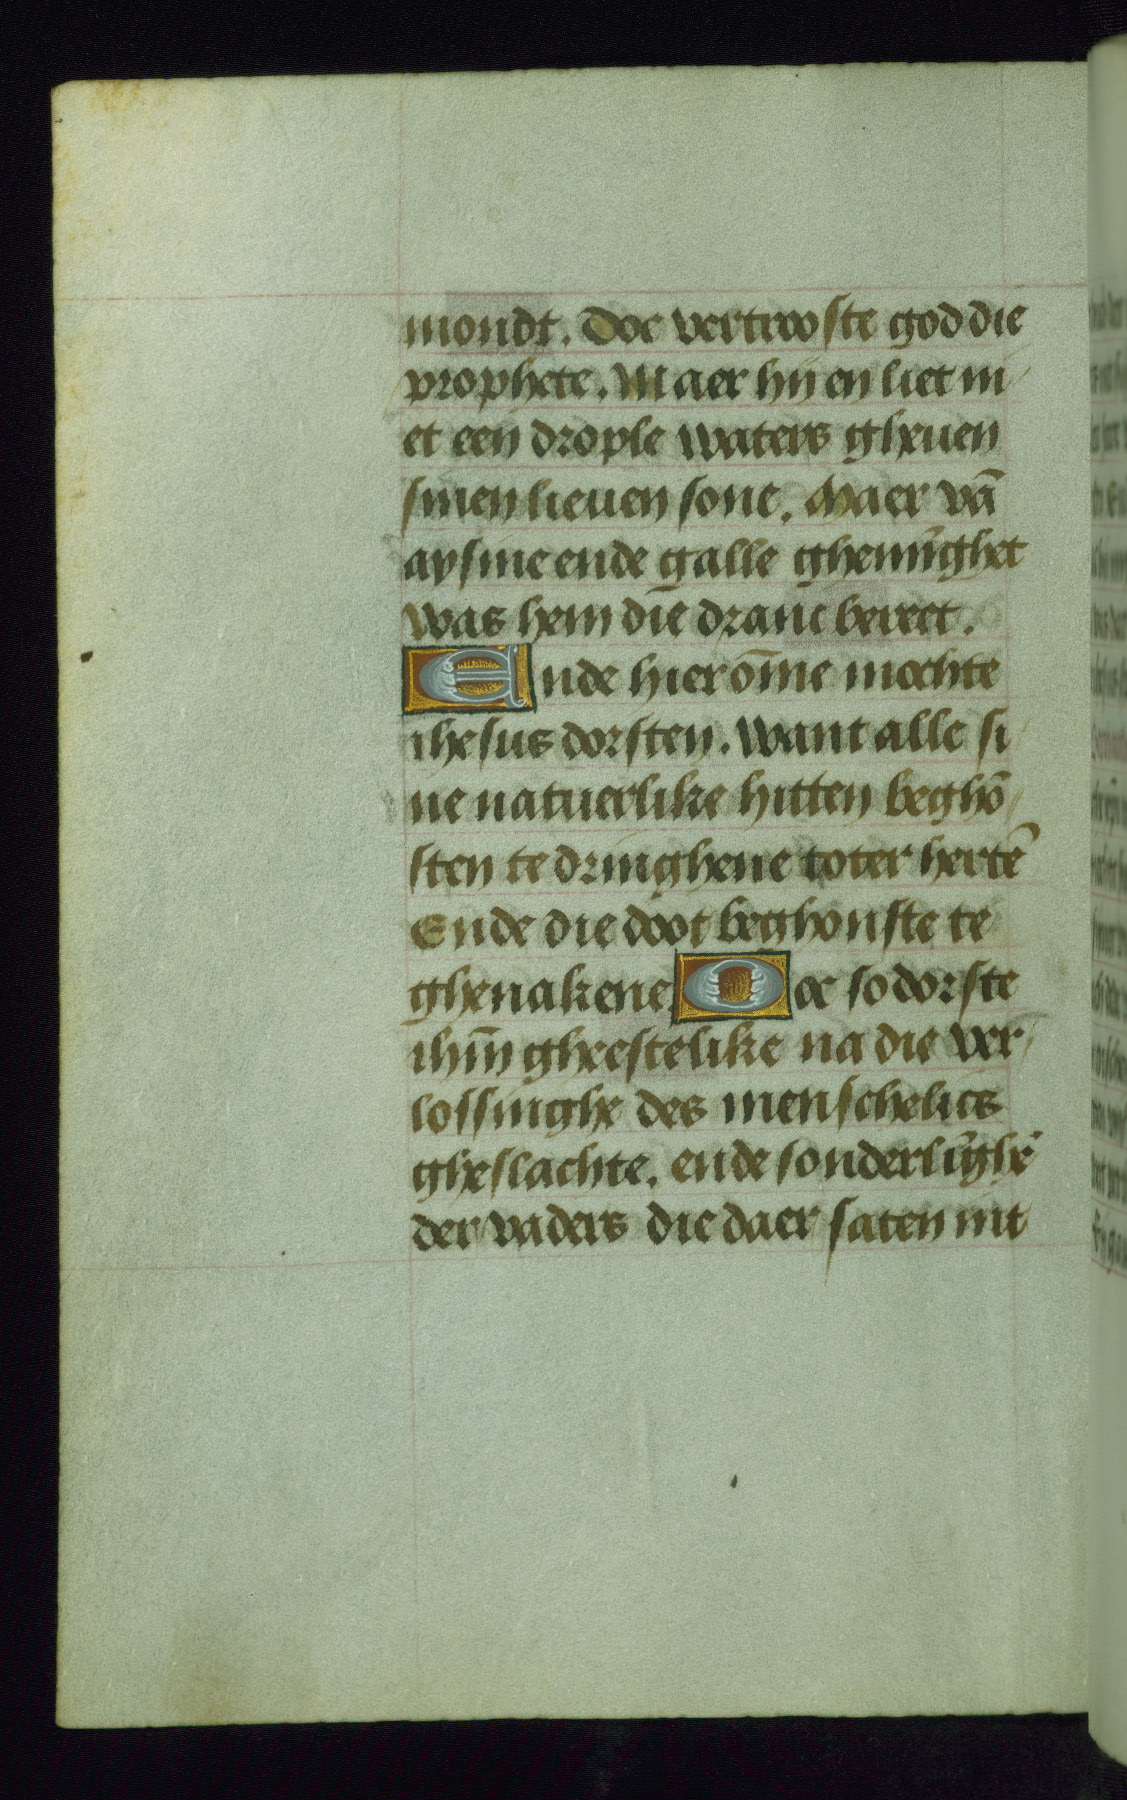 mondt. Doe vertrooste god die
prophete. Maer hij en liet ni
et een drople waters gheuen
sinen lieuen sone. Maer vā
aysine ende galle ghemīghet
was hem die dranc bereet.
Ende hier ōme mochte
ihesus dorsten. want alle si
ne natuerlike hitten beghō
sten te dringhene toter hertē
Ende die doot beghonste te
ghenakene. Oec so dorste
ihm̄ gheestelike na die ver
lossinghe des menschelics
gheslachte. ende sonderlīghē
der vaders die daer saten int